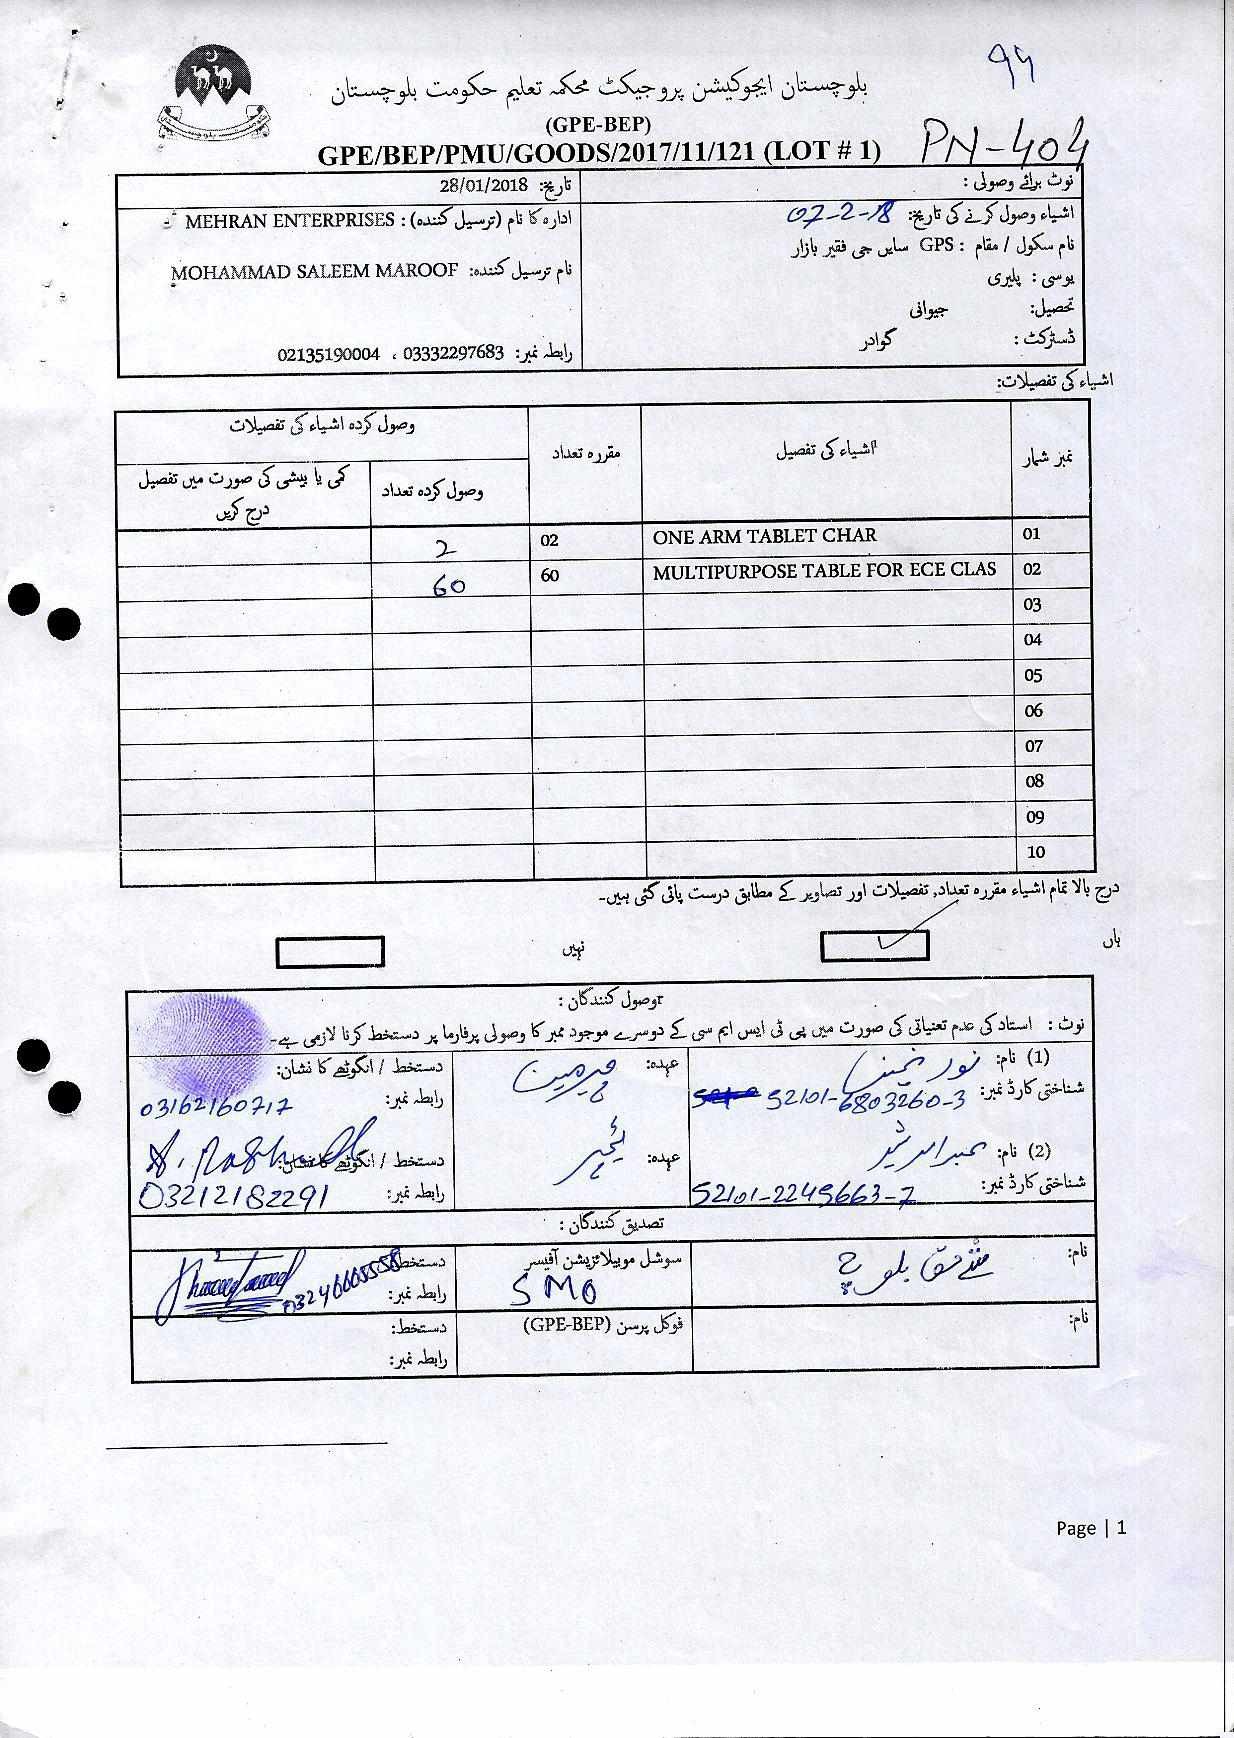 99
بلوچستان ایجوکیشن پروجیکٹ محکمہ تعلیم حکومت بلوچستان
(GPE-BEP)
GPE/BEP/PMU/GOODS/2017/11/121 (LOT # 1) PN-404
نوٹ برائے وصولی :
اشیاء وصول کرنے کی تاریخ: 07-2-18
نام سکول / مقام : GPS سایں جی فقیر بازار
یوسی : پلیری
تحصیل: جیوانی
ڈسٹرکٹ : گوادر
تاریخ: 28/01/2018
ادارہ کا نام (ترسیل کنندہ) : MEHRAN ENTERPRISES
نام ترسیل کنندہ: MOHAMMAD SALEEM MAROOF
رابطہ نمبر: 03332297683 ، 02135190004
اشیاء کی تفصیلات:
نمبر شمار اشیاء کی تفصیل مقررہ تعداد وصول کردہ اشیاء کی تفصیلات
وصول کردہ تعداد کمی یا بیشی کی صورت میں تفصیل درج کریں
01 ONE ARM TABLET CHAR 02 2
02 MULTIPURPOSE TABLE FOR ECE CLAS 60 60
03
04
05
06
07
08
09
10
درج بالا تمام اشیاء مقررہ تعداد, تفصیلات اور تصاویر کے مطابق درست پائی گئی ہیں۔
ہاں نہیں
وصول کنندگان :
نوٹ : استاد کی عدم تعنیاتی کی صورت میں پی ٹی ایس ایم سی کے دوسرے موجود ممبر کا وصولی پرفارما پر دستخط کرنا لازمی ہے۔
(1) نام: نور عہدہ: چرمین دستخط / انگوٹھے کا نشان:
شناختی کارڈ نمبر: 52101-6803260-3 رابطہ نمبر: 03162160717
(2) نام: عبدالرشید عہدہ: ٹیچر دستخط / انگوٹھے کا نشان: A. Rashid
شناختی کارڈ نمبر: 52101-2245663-7 رابطہ نمبر: 03212182291
تصدیق کنندگان :
نام: بلوچ سوشل موبیلائزیشن آفیسر دستخط:
SMO رابطہ نمبر: 03246665558
نام: فوکل پرسن (GPE-BEP) دستخط:
رابطہ نمبر:
Page | 1